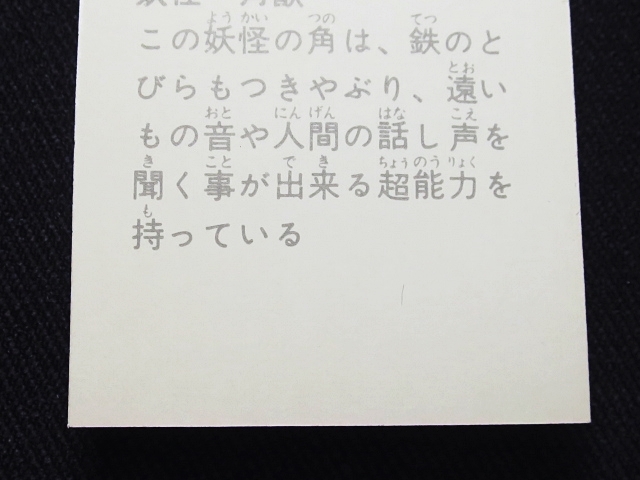 この妖怪の角は、鉄のと
びらもつきやぶり、遠い
もの音や人間の話し声を
聞く事が出来る超能力を
持っている